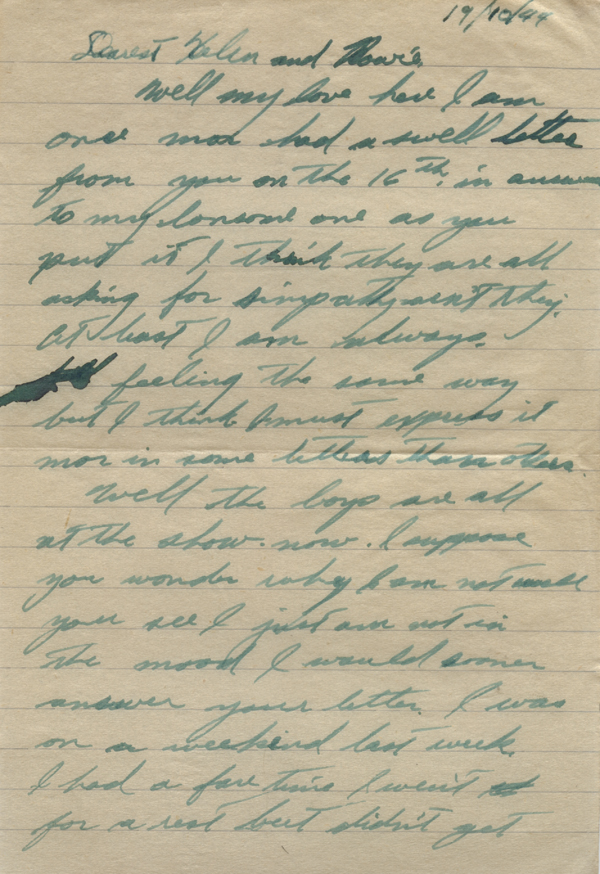 19/10/44
Dearest Helen and Howie
Well my love here I am
once mor had a swell letter
from you on the 16th. in answer
to my lonsome one as you
put it I think they are all
asking for simpathy aen't they.
At least I am always.
feeling the same way
but I think I must express it
mor in some letters than others.
Well the boys are all
at the show now. I suppose
you wonder why I am not well
you see I just am not in
the mood I would sooner
answer your letter. I was
on a weekend last week.
I had a fare time I went
for a rest but didn't get